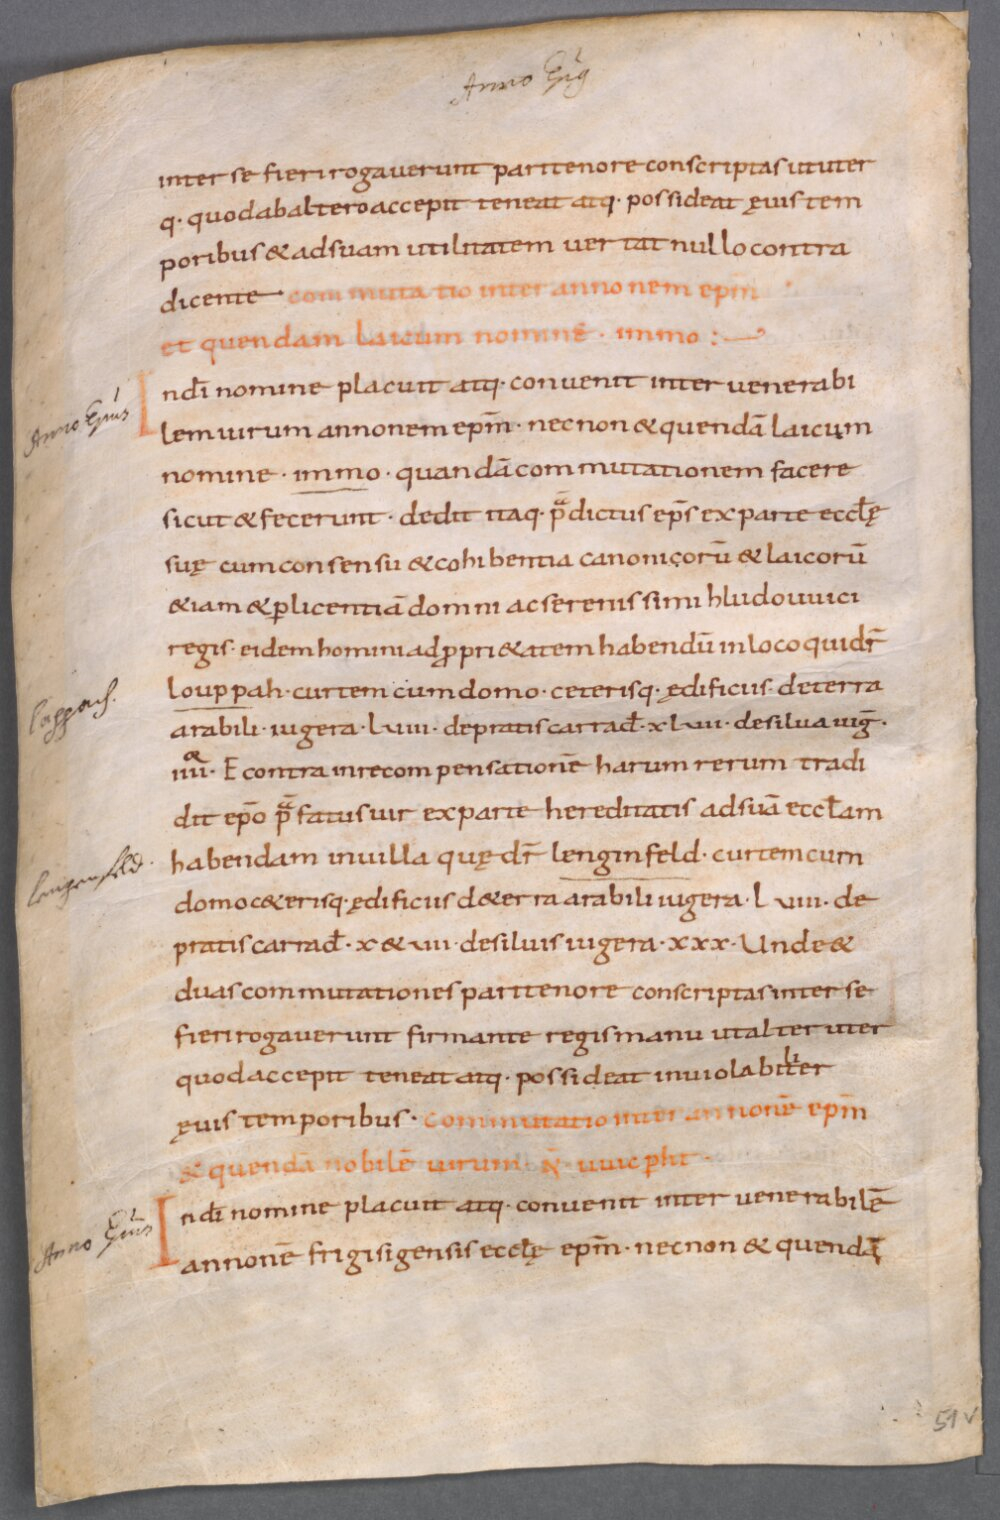 Anno Epũs
inter se fieri rogaverunt pari tenore conscriptas ut uter
q· quod ab altero accepit teneat atq· possideat ęvis tem
poribus & ad suam utilitatem vertat nullo contra
dicente commutatio inter annonem epm̃
et quendam laicum nominẽ · immo :
Indĩ nomine placuit atq· convenit inter venerabi
Anno Epũs
lem uirum annonem epm̃ · necnon & quendã laicum
nomine · immo · quandã commutationem facere
sicut & fecerunt · dedit itaq· p̃dictus ep̃s ex parte eccl̃ę
suę cum consensu & cohibentia canonicorũ & laicorũ
&iam & p licentiã domni ac serenissimi hludouuici
regis · eidem homini ad ppri&atem habendũ in loco qui dr̃
louppah · curtem cum domo · ceterisq· ędificiis · de terra
Lappach.
arabili · iugera · lviii · de pratis carrad̃ · xlvii · de silva iug̃ ·
iiii · E contra in recompensationẽ harum rerum tradi
dit ep̃o p̃fatus vir ex parte hereditatis ad suã eccl̃am
habendam in villa quę dr̃ lenginfeld · curtem cum
Lengenfeld.
domo c&erisq· ędificiis d& erra arabili iugera · l viiii · de
pratis carrad̃ · x & viii · de silvis iugera · xxx · Unde &
duas commutationes pari tenore conscriptas inter se
fieri rogaverunt firmante regis manu ut alter uter
quod accepit teneat atq· possideat inviolabiliter
ęvis temporibus · Commutatio inter annonẽ epm̃
& quendã nobilẽ virum · ñ · uuicpht ·
Indĩ nomine placuit atq· convenit inter venerabilẽ
Anno Epũs
annonẽ frigisigensis eccl̃ę epm̃ · necnon & quendã
51v